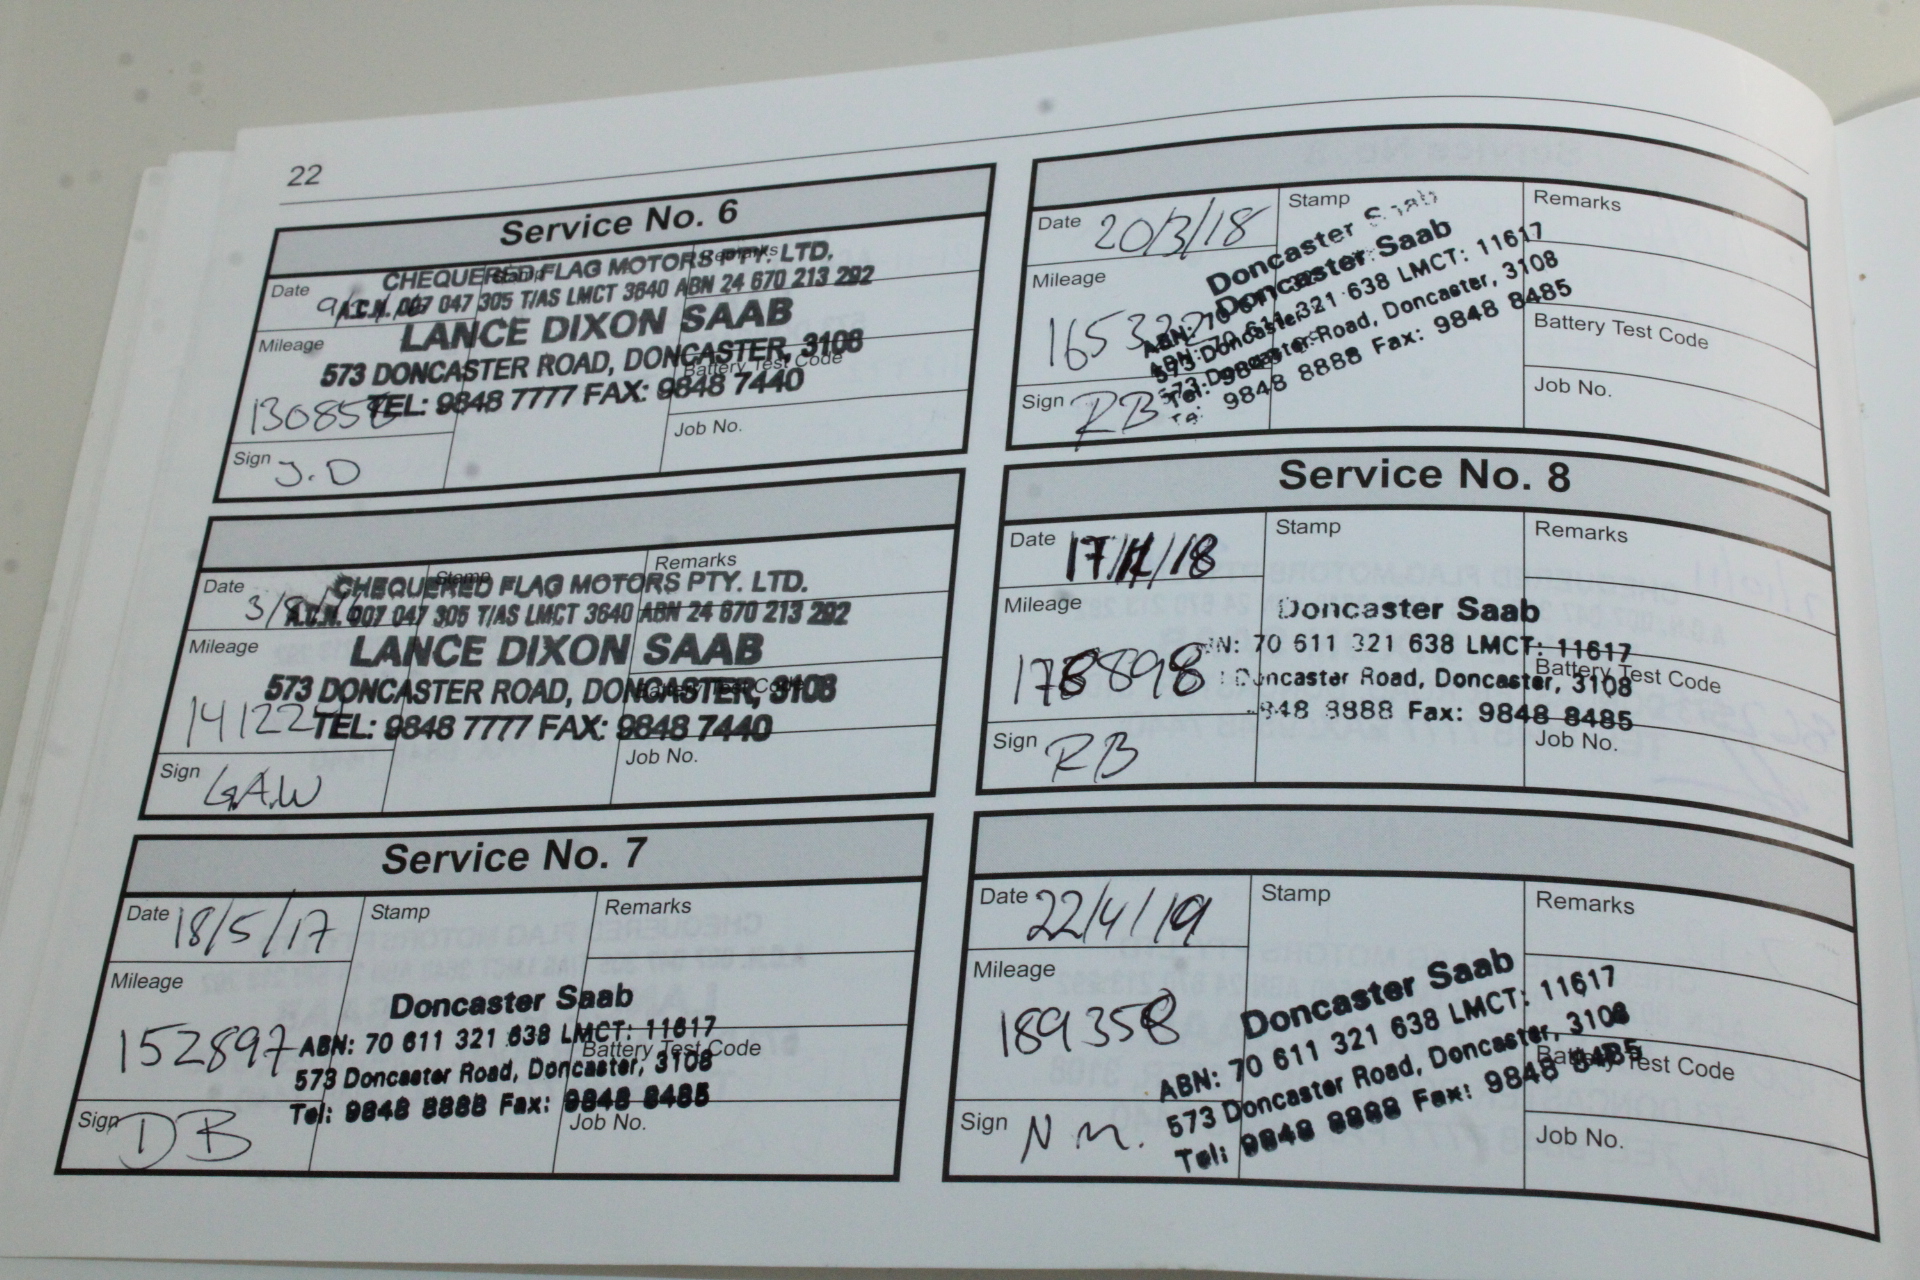 22
Service No. 6
Date
Stamp
Remarks
CHEQUERED FLAG MOTORS PTY. LTD.
A.C.N. 007 047 305 T/AS LMCT 3640 ABN 24 670 213 292
LANCE DIXON SAAB
573 DONCASTER ROAD, DONCASTER, 3108
TEL: 9848 7777 FAX: 9848 7440
Mileage
130858
Battery Test Code
Job No.
Sign J.D
Date
Stamp
Remarks
CHEQUERED FLAG MOTORS PTY. LTD.
A.C.N. 007 047 305 T/AS LMCT 3640 ABN 24 670 213 292
LANCE DIXON SAAB
573 DONCASTER ROAD, DONCASTER, 3108
TEL: 9848 7777 FAX: 9848 7440
Mileage
Battery Test Code
Job No.
Sign G.A.W
Service No. 7
Date 18/5/17
Stamp
Remarks
Mileage
152897
Doncaster Saab
ABN: 70 611 321 638 LMCT: 11617
573 Doncaster Road, Doncaster, 3108
Tel: 9848 8888 Fax: 9848 8485
Battery Test Code
Job No.
Sign DB
Date 20/3/18
Stamp
Remarks
Mileage
Doncaster Saab
Doncaster Saab
ABN: 70 611 321 638 LMCT: 11617
573 Doncaster Road, Doncaster, 3108
Tel: 9848 8888 Fax: 9848 8485
Battery Test Code
Job No.
Sign RB
Service No. 8
Date 17/11/18
Stamp
Remarks
Mileage
178898
Doncaster Saab
70 611 321 638 LMCT: 11617
Doncaster Road, Doncaster, 3108
9848 8888 Fax: 9848 8485
Battery Test Code
Job No.
Sign RB
Date 22/4/19
Stamp
Remarks
Mileage
189358
Doncaster Saab
ABN: 70 611 321 638 LMCT: 11617
573 Doncaster Road, Doncaster, 3108
Tel: 9848 8888 Fax: 9848 8485
Battery Test Code
Job No.
Sign N m.